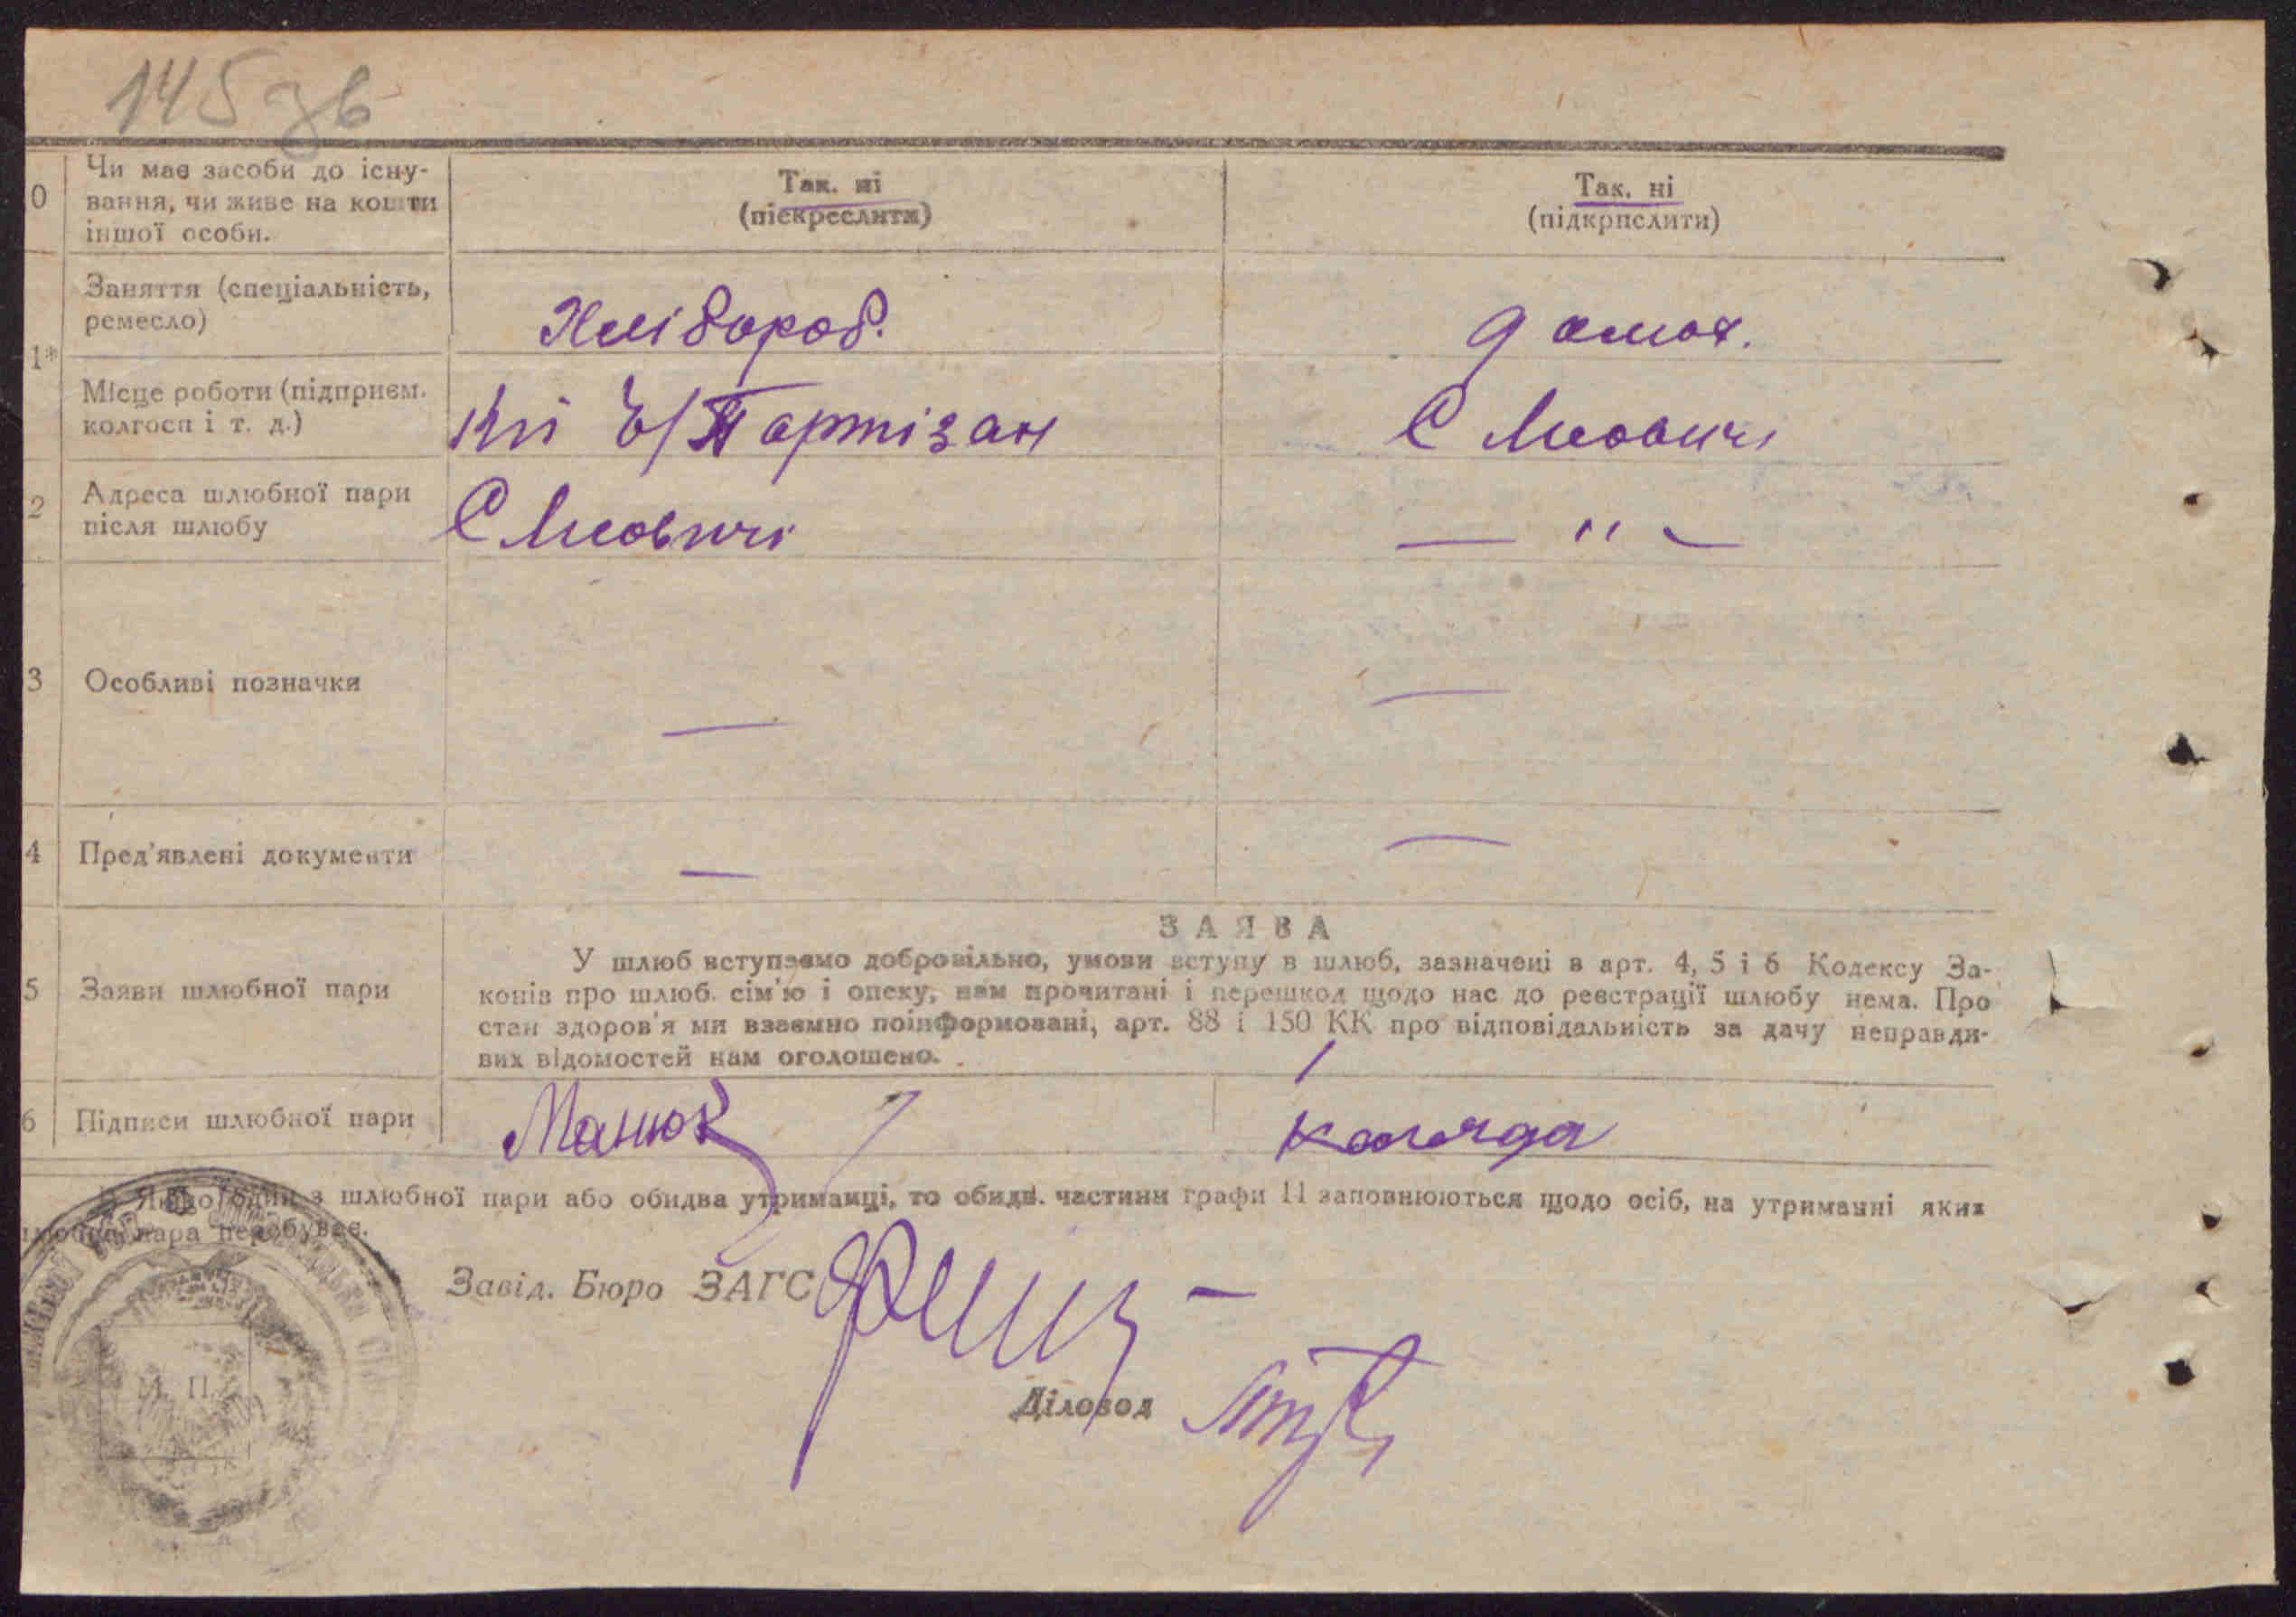 145 зв
0 Чи має засоби до існу-
вання, чи живе на кошти
іншої особи.
Так. ні
(піекреслити)
Так. ні
(підкрпслити)
1* Заняття (спеціальність,
ремесло)
Хлібороб.
домог.
Місце роботи (підприєм.
колгосп і т. д.)
Ч/Партізан
С Мисовичі
2 Адреса шлюбної пари
після шлюбу
С Мисовичі
— " —
3 Особливі позначки
—
—
4 Пред'явлені документи
—
—
ЗАЯВА
5 Заяви шлюбної пари
У шлюб вступаємо добровільно, умови вступу в шлюб, зазначені в арт. 4, 5 і 6 Кодексу За-
конів про шлюб. сім'ю і опеку, нам прочитані і перешкод щодо нас до реєстрації шлюбу нема. Про
стан здоров'я ми взаємно поінформовані, арт. 88 і 150 КК про відповідальність за дачу неправди-
вих відомостей нам оголошено.
6 Підписи шлюбної пари
Манюк
Каляда
Якщо один з шлюбної пари або обидва утриманці, то обидві. частини графи 11 заповнюються щодо осіб, на утриманні яких
шлюбна пара перебуває.
Завід. Бюро ЗАГС
М. П.
Діловод